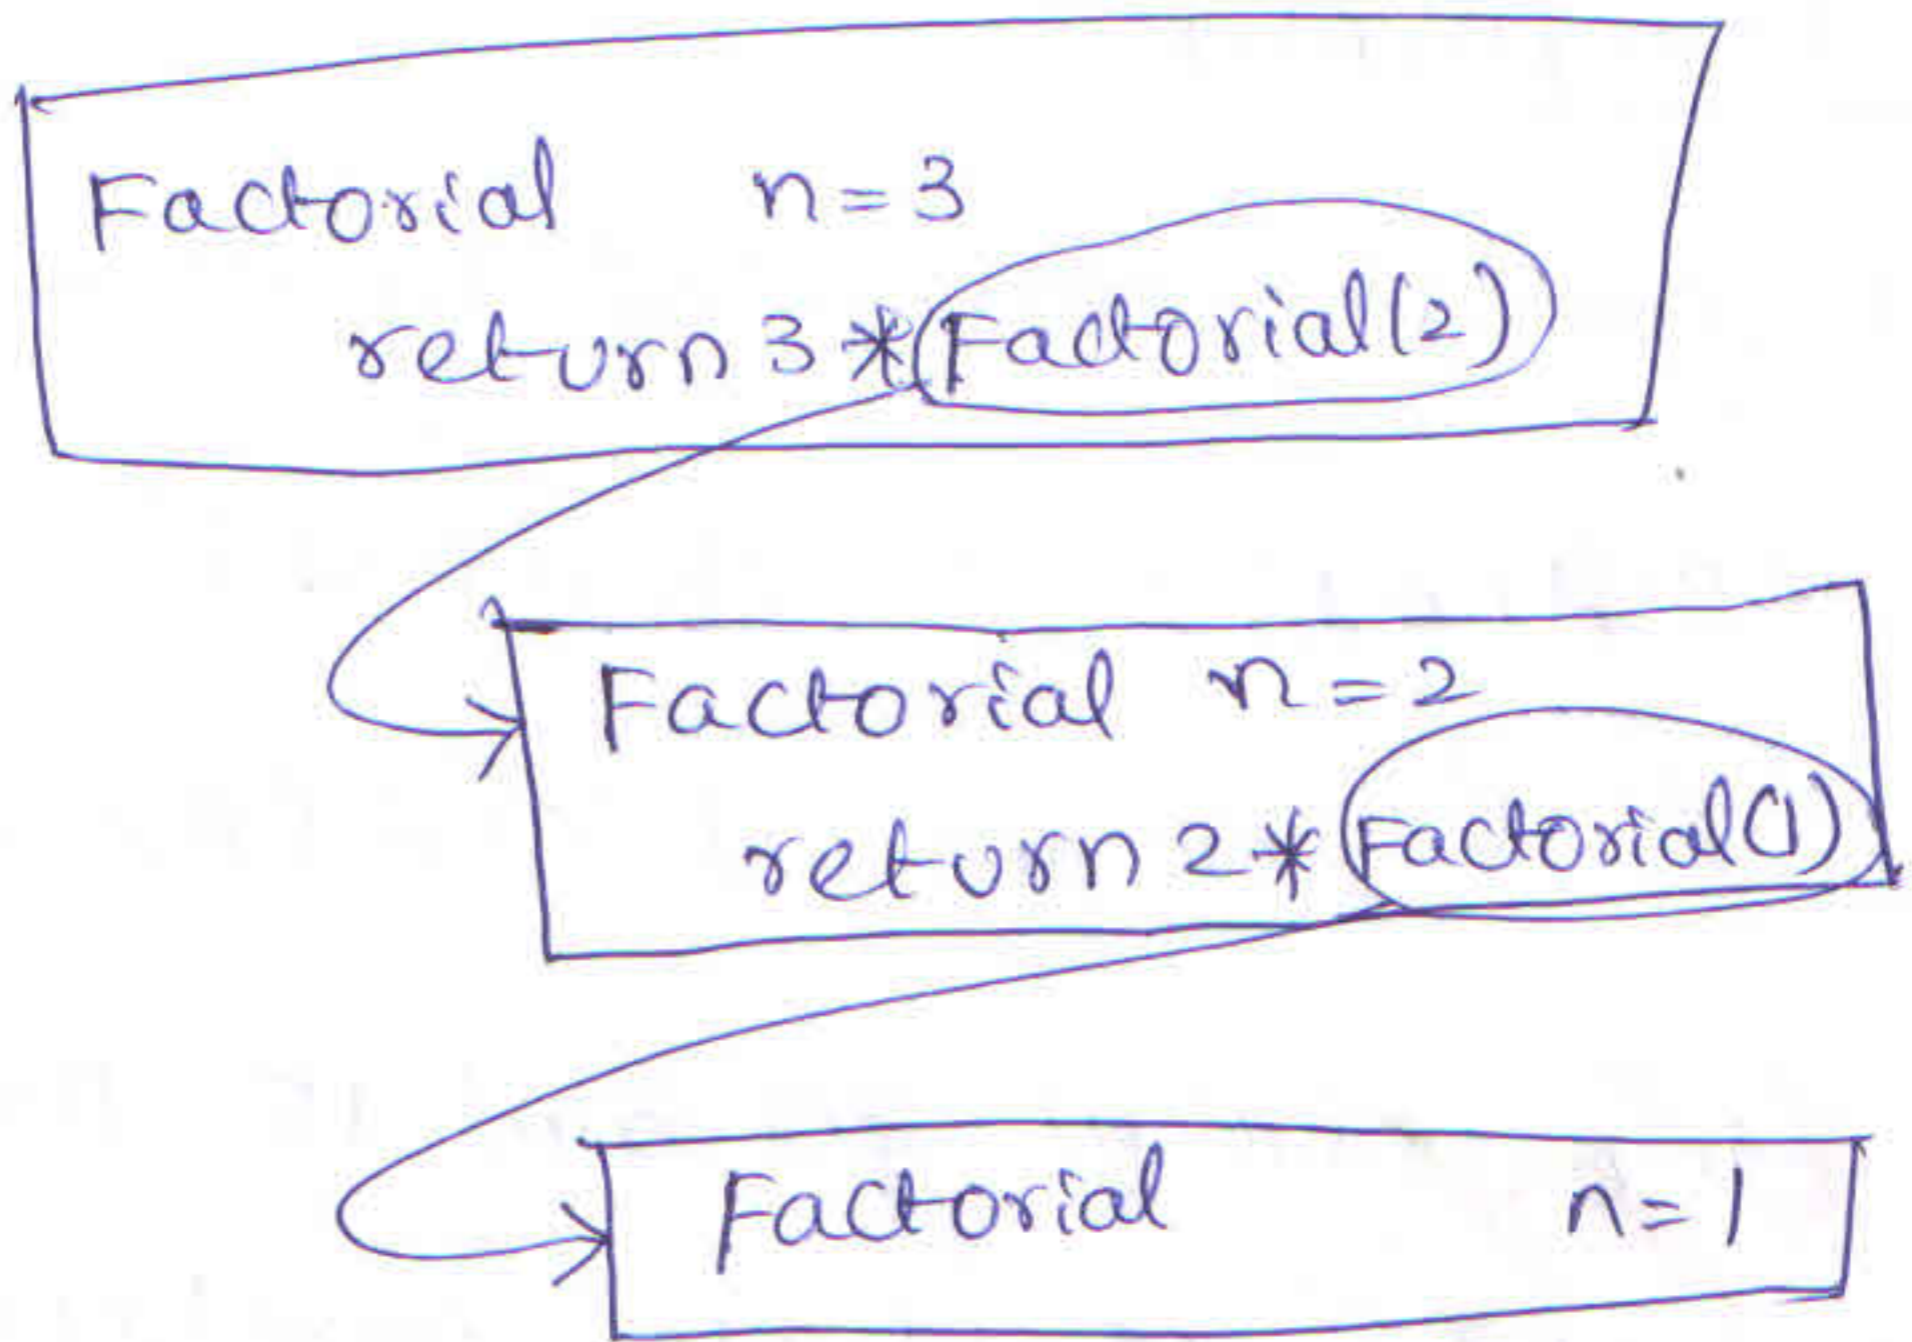 Factorial n=3
return 3 * Factorial(2)
Factorial n=2
return 2 * Factorial(1)
Factorial n=1